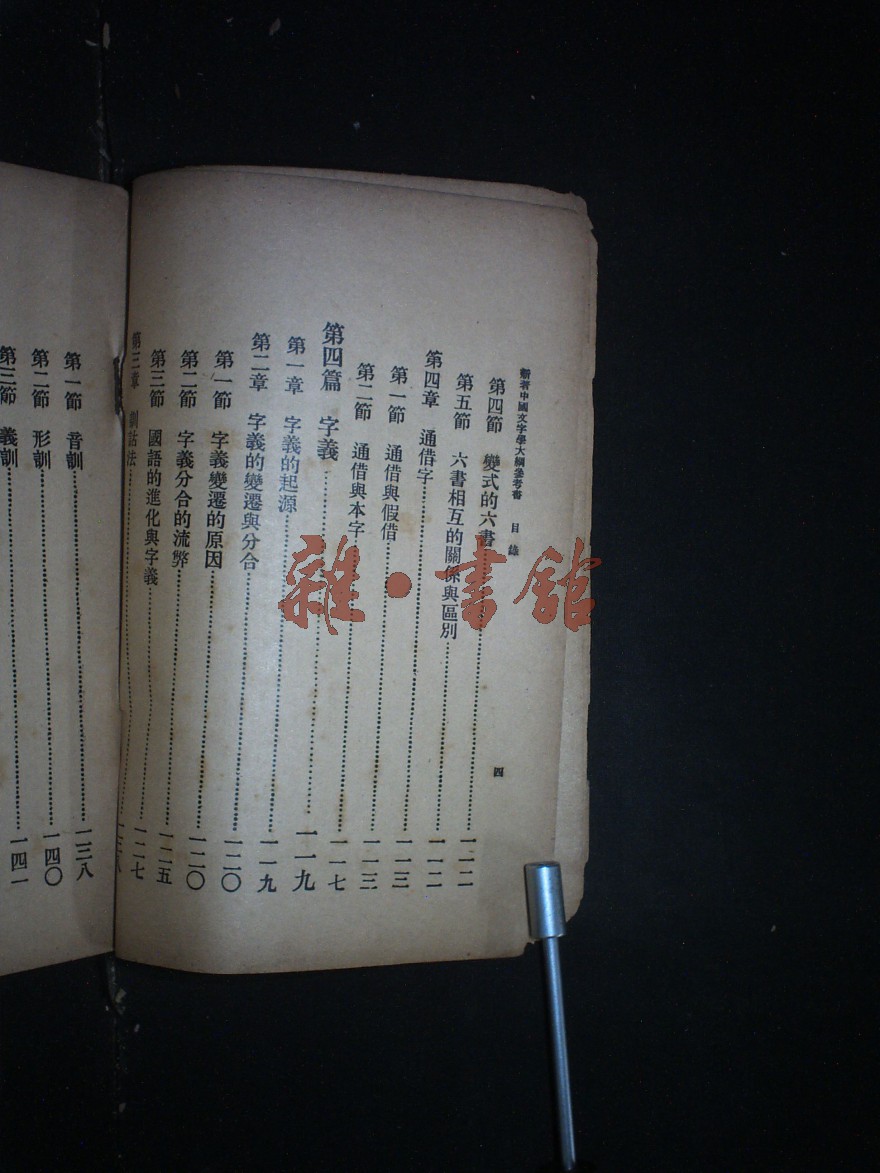 新著中國文字學大綱參考書 目錄
四
第四節 變式的六書……一一二
第五節 六書相互的關係與區別……一一二
第四章 通借字……一一三
第一節 通借與假借……一一三
第二節 通借與本字……一一七
第四篇 字義……一一九
第一章 字義的起源……一一九
第二章 字義的變遷與分合……一二〇
第一節 字義變遷的原因……一二〇
第二節 字義分合的流弊……一二五
第三節 國語的進化與字義……一二七
第三章 訓詁法……
第一節 音訓……一三八
第二節 形訓……一四〇
第三節 義訓……一四一
雜·書館